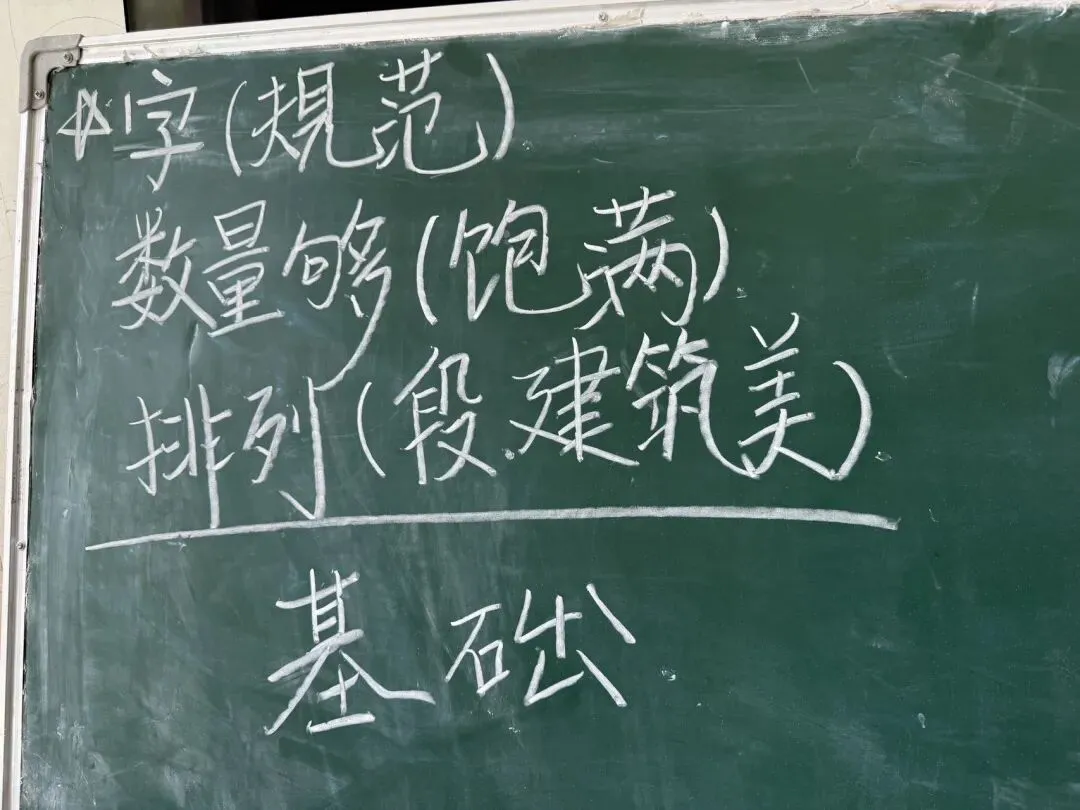 ☆字(规范)
数量够(饱满)
排列(段.建筑美)
基础